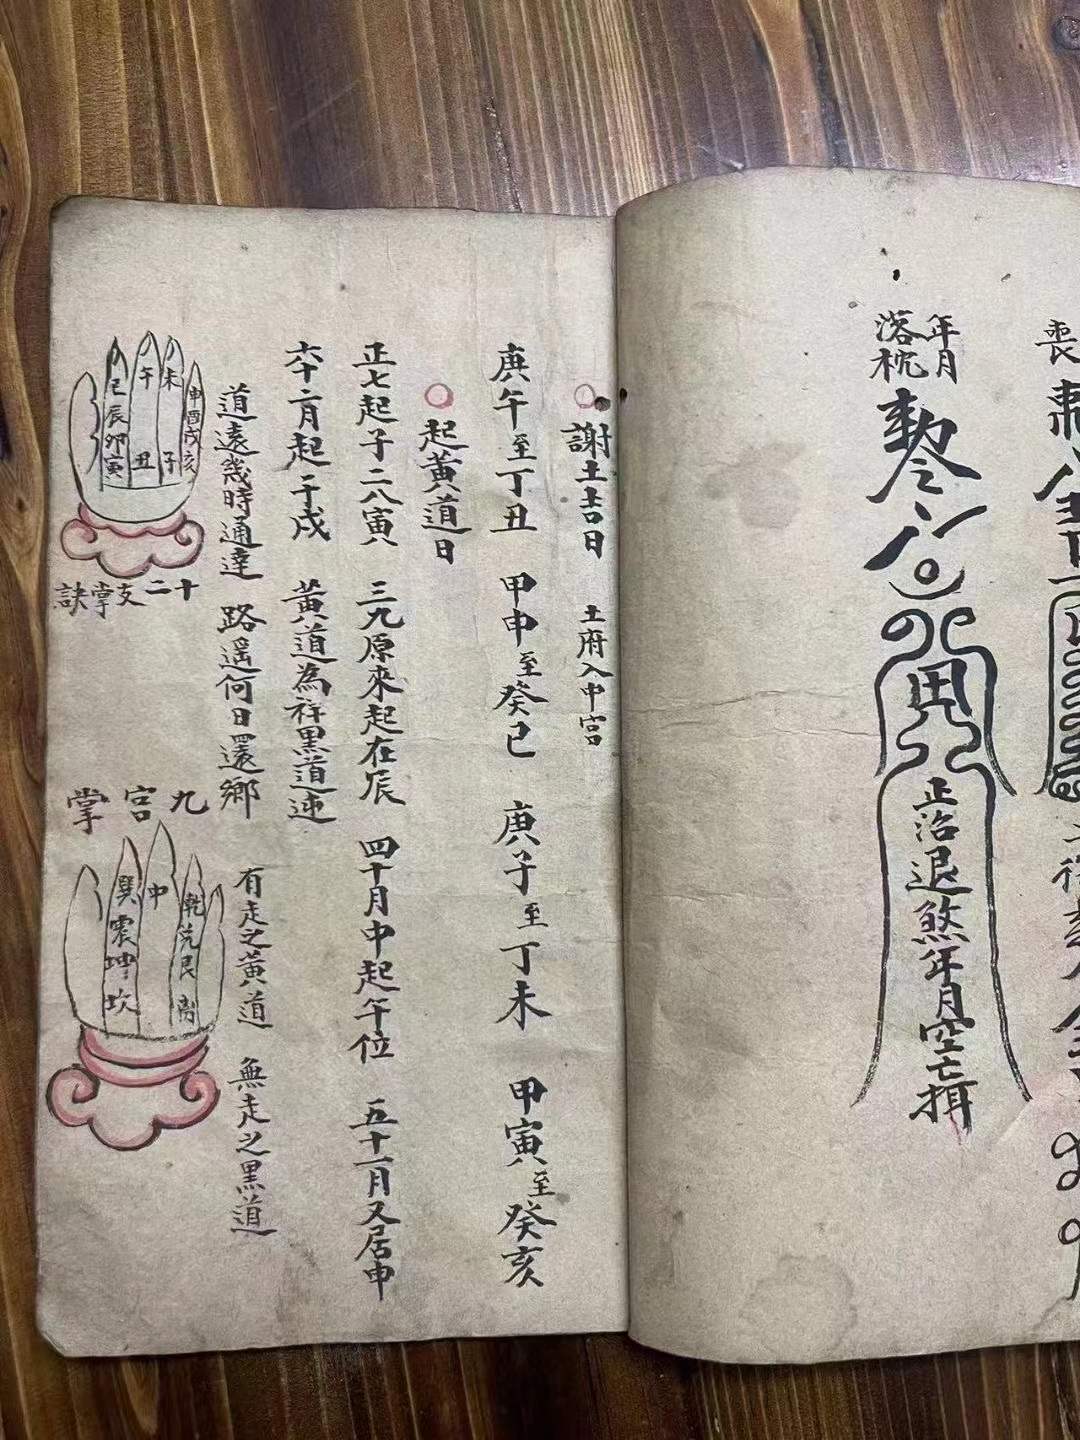 喪
年月
落枕
敕令
正治退煞年月空亡揖
謝土吉日 土府入中宮
庚午至丁丑 甲申至癸巳 庚子至丁未 甲寅至癸亥
起黃道日
正七起子二八寅 三九原來起在辰 四十月中起午位 五十一月又居申
六十二月起于戌 黃道為祥黑道迍
道遠幾時通達 路遥何日還鄉
有走之黃道 無走之黑道
巳辰卯寅
午丑
未子
申酉戌亥
十二支掌訣
九宮掌
巽震坤坎
中
乾兌艮离